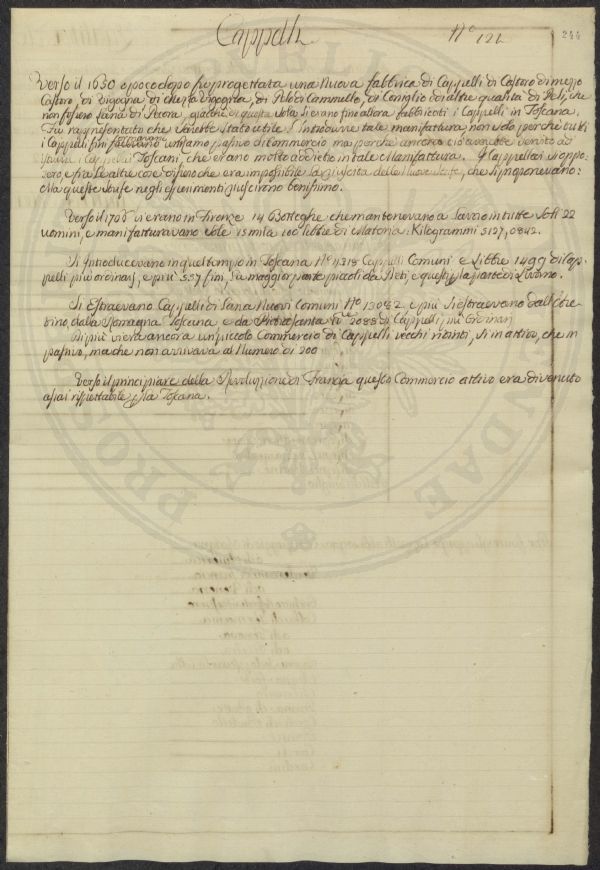 Cappelli N.° 121 244
Verso il 1630 e poco dopo fu progettata una Nuova fabbrica di Cappelli di Castoro di mezzo
Castoro, di Vigogna, di mezza Vigogna, di Pelo di Cammello, di Coniglio e di altre qualità di Peli, che
non fossero Lana di Pecora, giacchè di questa sola si erano fino allora fabbricati i Cappelli in Toscana.
Fu rappresentato che sarebbe stato utile l'Introdurre tale manifattura non solo perchè tutti
i Cappelli fini formavano un ramo passivo di Commercio ma perchè ancora
i Cappellai Toscani, che erano molto addietro in tale Manifattura. I Cappellai si oppo-
sero e fra le altre cose dissero che era impossibile la riuscita delle Nuove Stoffe, che si proponevano:
Ma queste Stoffe negli esperimenti riuscirono benissimo.
Verso il vi erano in Firenze 14 Botteghe che mantenevano a Lavoro in tutte soli 22
uomini, e manifatturavano sole 15 mila 100 libbre di Materia: Kilogrammi 5127,0842.
Si Introducevano in quel tempo in Toscana N.° 11318 Cappelli Comuni e Libbre 1499 di Cap-
pelli più ordinarj, e più 537 fini, la maggior parte piccoli da Preti, e questi p la parte di Livorno.
Si Estraevano Cappelli di Lana Nuovi Comuni N.° 13082 e più si estraevano dall'
dalla Romagna Toscana e da Pietrasanta 2088 di Cappelli più Ordinarj
Di più vi era ancora un piccolo Commercio di Cappelli vecchi ritinti, sì in attivo, che in
passivo, ma che non arrivava al Numero di 200
Verso il principiare della Rivoluzione di Francia questo Commercio attivo era divenuto
assai rispettabile p la Toscana.